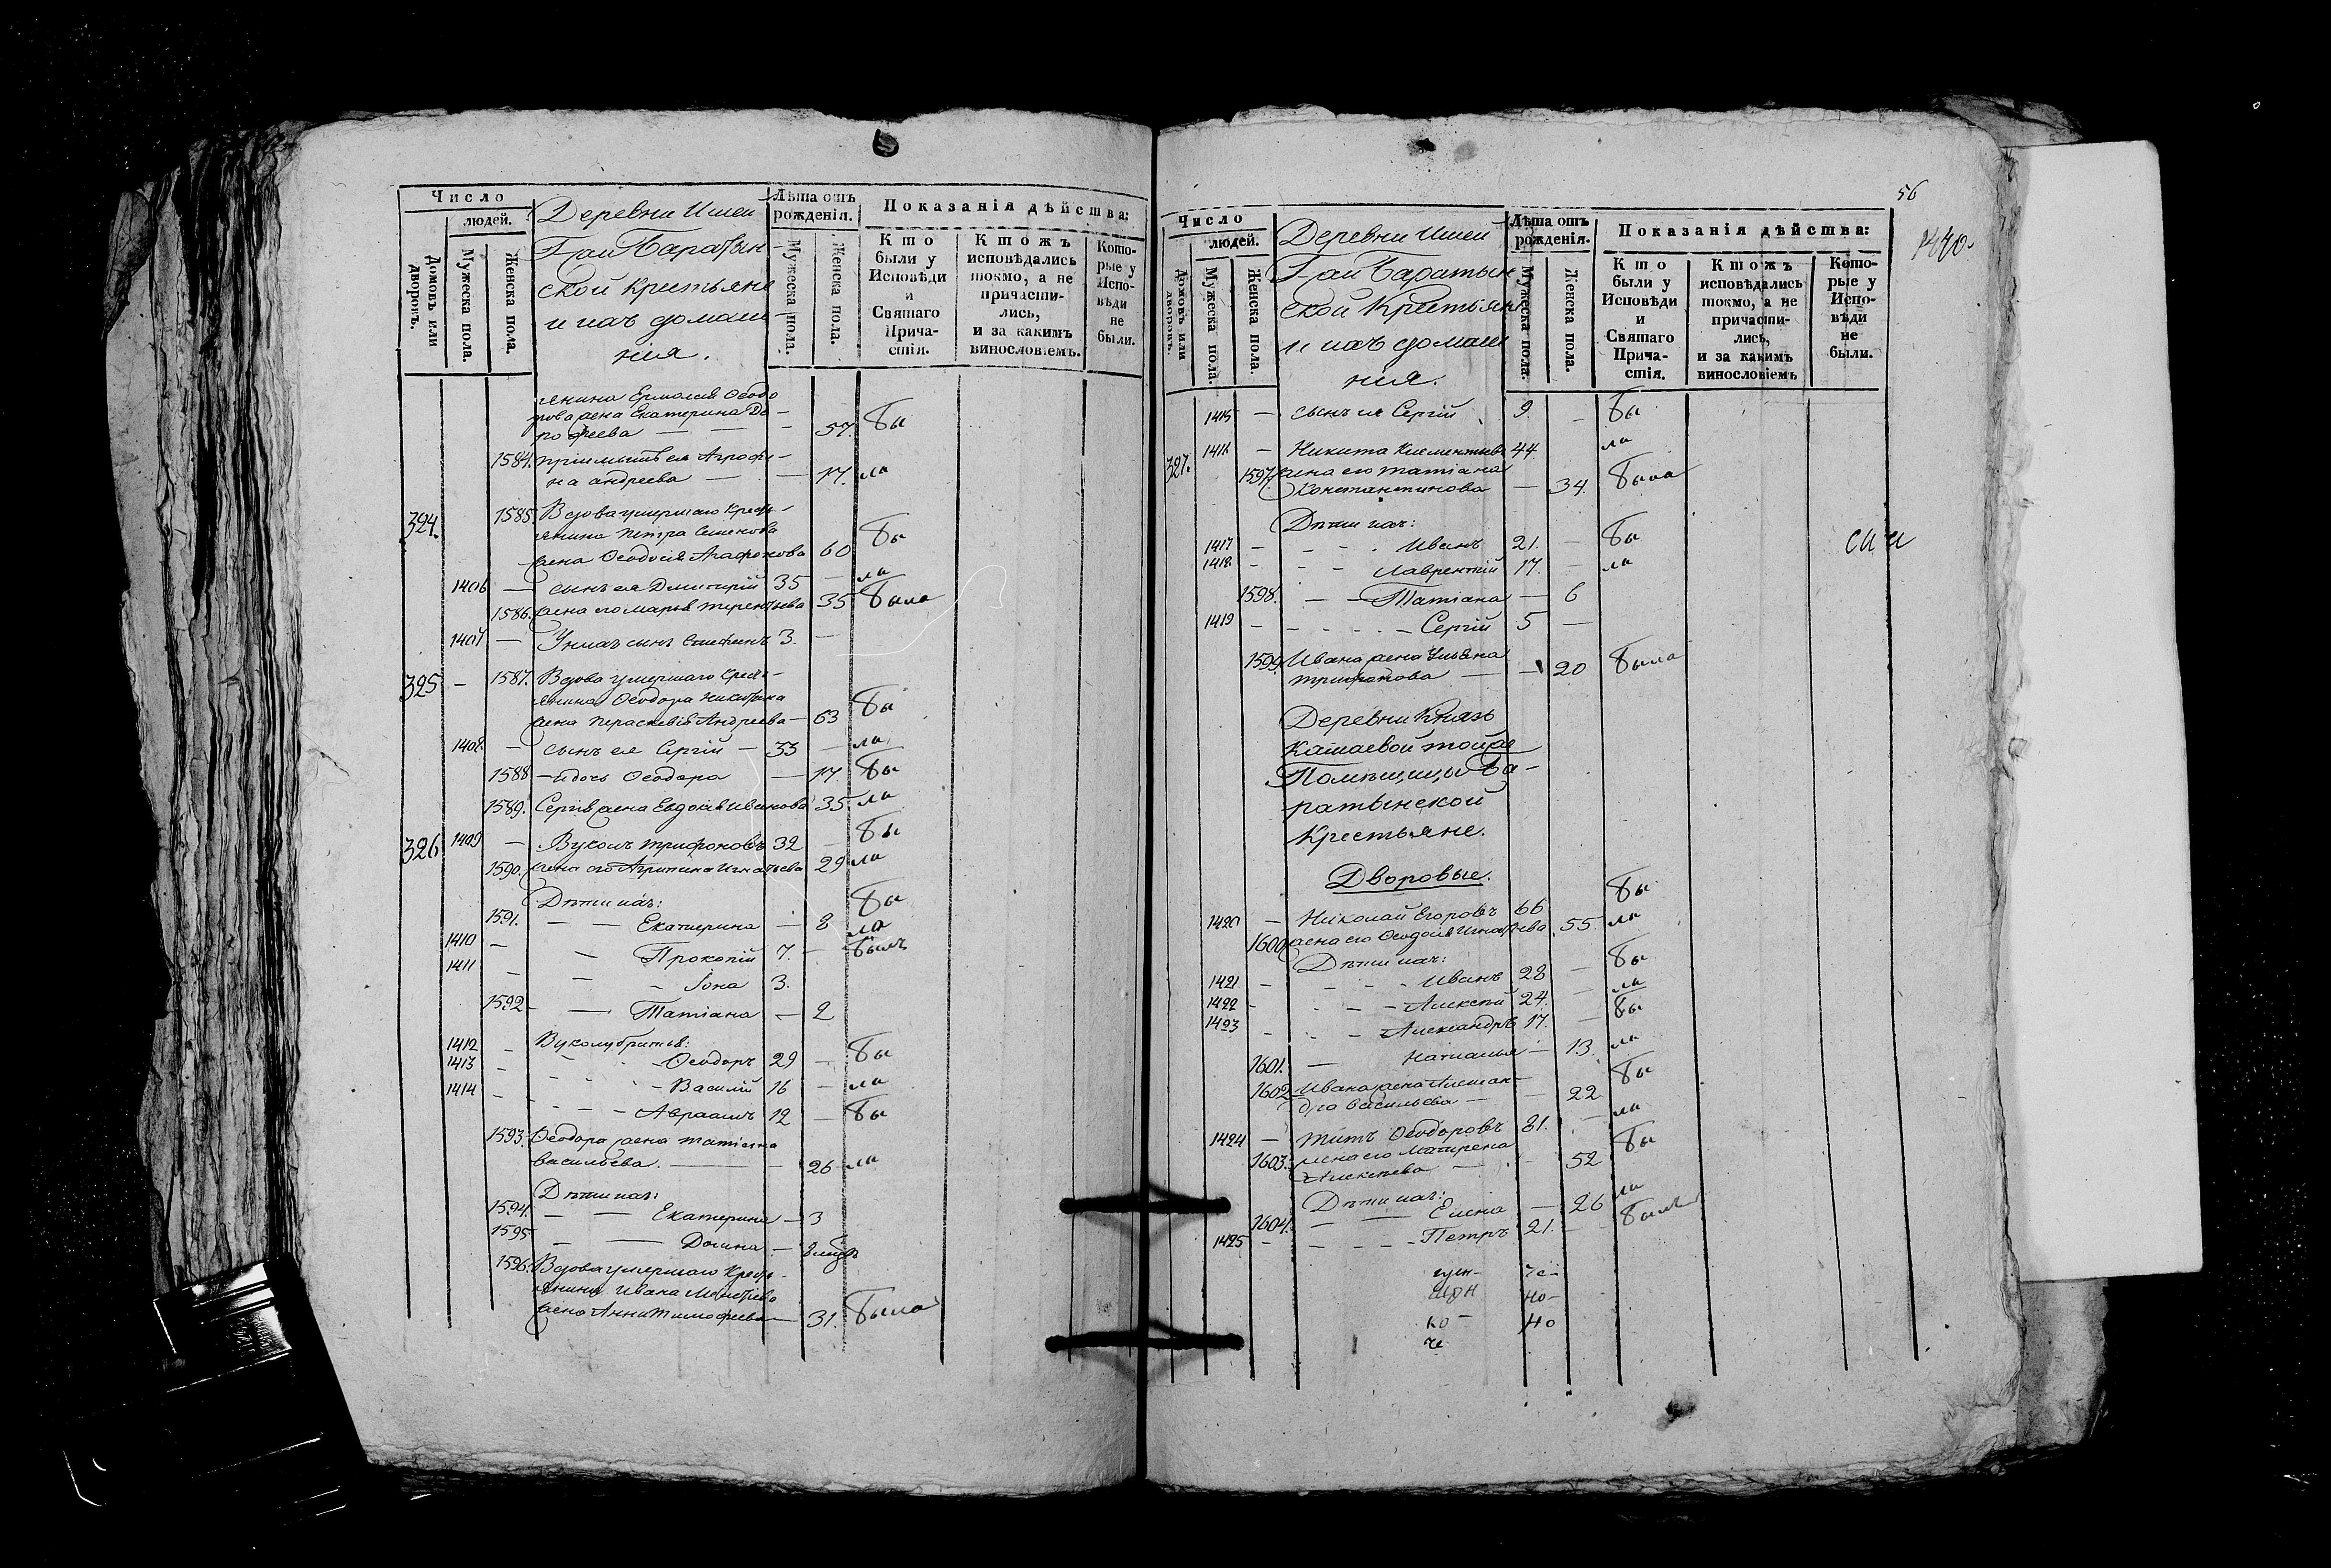 Число
людей.
Домовъ или дворовъ.
Мужеска пола.
Женска пола.
Деревни Ишеи
Гаи Баратын-
ской Крестьяне
и ихъ домаш-
нія.
Лѣта отъ рожденія.
Мужеска пола.
Женска пола.
Показанія дѣйства:
Кто были у Исповѣди и Святаго Прича-стія.
Ктожъ исповѣдались токмо, а не причасти-лись, и за какимъ винословіемъ.
Кото-рые у Испо-вѣди не были.
янина Ермолая Ѳеодо
рова жена Екатерина До-
роѳеева — — - 57. Бы
1584. пріимышъ ея Агрофе-
на андреева — — 17. ла
324. 1585. Вдова умершаго Кресть-
янина Петра Семенова
жена Ѳеодосія Агафонова 60 Бы
1406 — сынъ ея Димитрій 35 — ла
1586. жена его марья терентьева 35 Была
1407 — У нихъ сынъ Стефанъ 3. —
325 — 1587. Вдова умершаго Кресть-
янина Ѳеодора Никитина
жена Параскевія Андреева — 63 Бы
1408. — сынъ ея Сергій — 33 — ла
1588 — дочь Ѳеодора — 17. Бы
1589. Сергія жена Евдокія Иванова 35 ла
326 1409 — Вуколъ трифоновъ 32 — Бы
1590. жена его Агрипина Игнатьева 29 ла
Дѣти ихъ: Бы
1591. — — Екатерина — 8 ла
1410 — — Прокопій 7. — Былъ
1411 — — Іона 3.
1592 — — Татіана — 2
1412 — Вуколу братья:
1413 — - Ѳеодоръ 29 — Бы
1414 — - Василій 16 — ла
- - Авраамъ 12 — Бы
1593. Ѳеодора жена татіана
васильева. — — 26 ла
Дѣти ихъ:
1594. — — Екатерина — 3
1595 — — Домна —
1596. Вдова умершаго Кресть-
янина Ивана
жена Анна Тимофеева — 31. Была
56
1440.
Число
людей.
Домовъ или дворовъ.
Мужеска пола.
Женска пола.
Деревни Ишеи
Гаи Баратын
ской Крестьяне
и ихъ домаш
нія.
Лѣта отъ рожденія.
Мужеска пола.
Женска пола.
Показанія дѣйства:
Кто были у Исповѣди и Святаго Прича-стія.
Ктожъ исповѣдались токмо, а не причасти-лись, и за какимъ винословіемъ
Кото-рые у Испо-вѣди не были.
1415 — сынъ ея Сергій 9. — Бы
327. 1416 — Никита Клементьевъ 44 ла
1597. жена его татіана
Константинова — 34. Была
Дѣти ихъ:
1417 — - - Иванъ 21. — Бы
1418. - - - Лаврентій 17. — ла
1598. — — Татіана — 6
1419 - - - Сергій 5 —
1599. Ивана жена Ульяна
трифонова — — 20 Была
Деревни Князь
Камаевой тойже
Помѣщицы Ба-
ратынской
Крестьяне.
Дворовые.
1420 — Николай Егоровъ 66 Бы
1600. жена его Ѳеодосія Игнатьева 55 ла
Дѣти ихъ:
1421 - - - Иванъ 28 — Бы
1422 - - - Алексѣй 24. — ла
1423 - - - Александръ 17. — Бы
1601. — Наталья — 13. ла
1602. Ивана жена Алексан-
дра васильева — — 22 Бы
1424 — титъ Ѳеодоровъ 81. — ла
1603. жена его Матрена
Алексѣева — - 52 Бы
Дѣти ихъ:
1604. — — Елена — 26 ла
1425 — - - - Петръ 21. — Былъ
щен- че-
ко- но
че